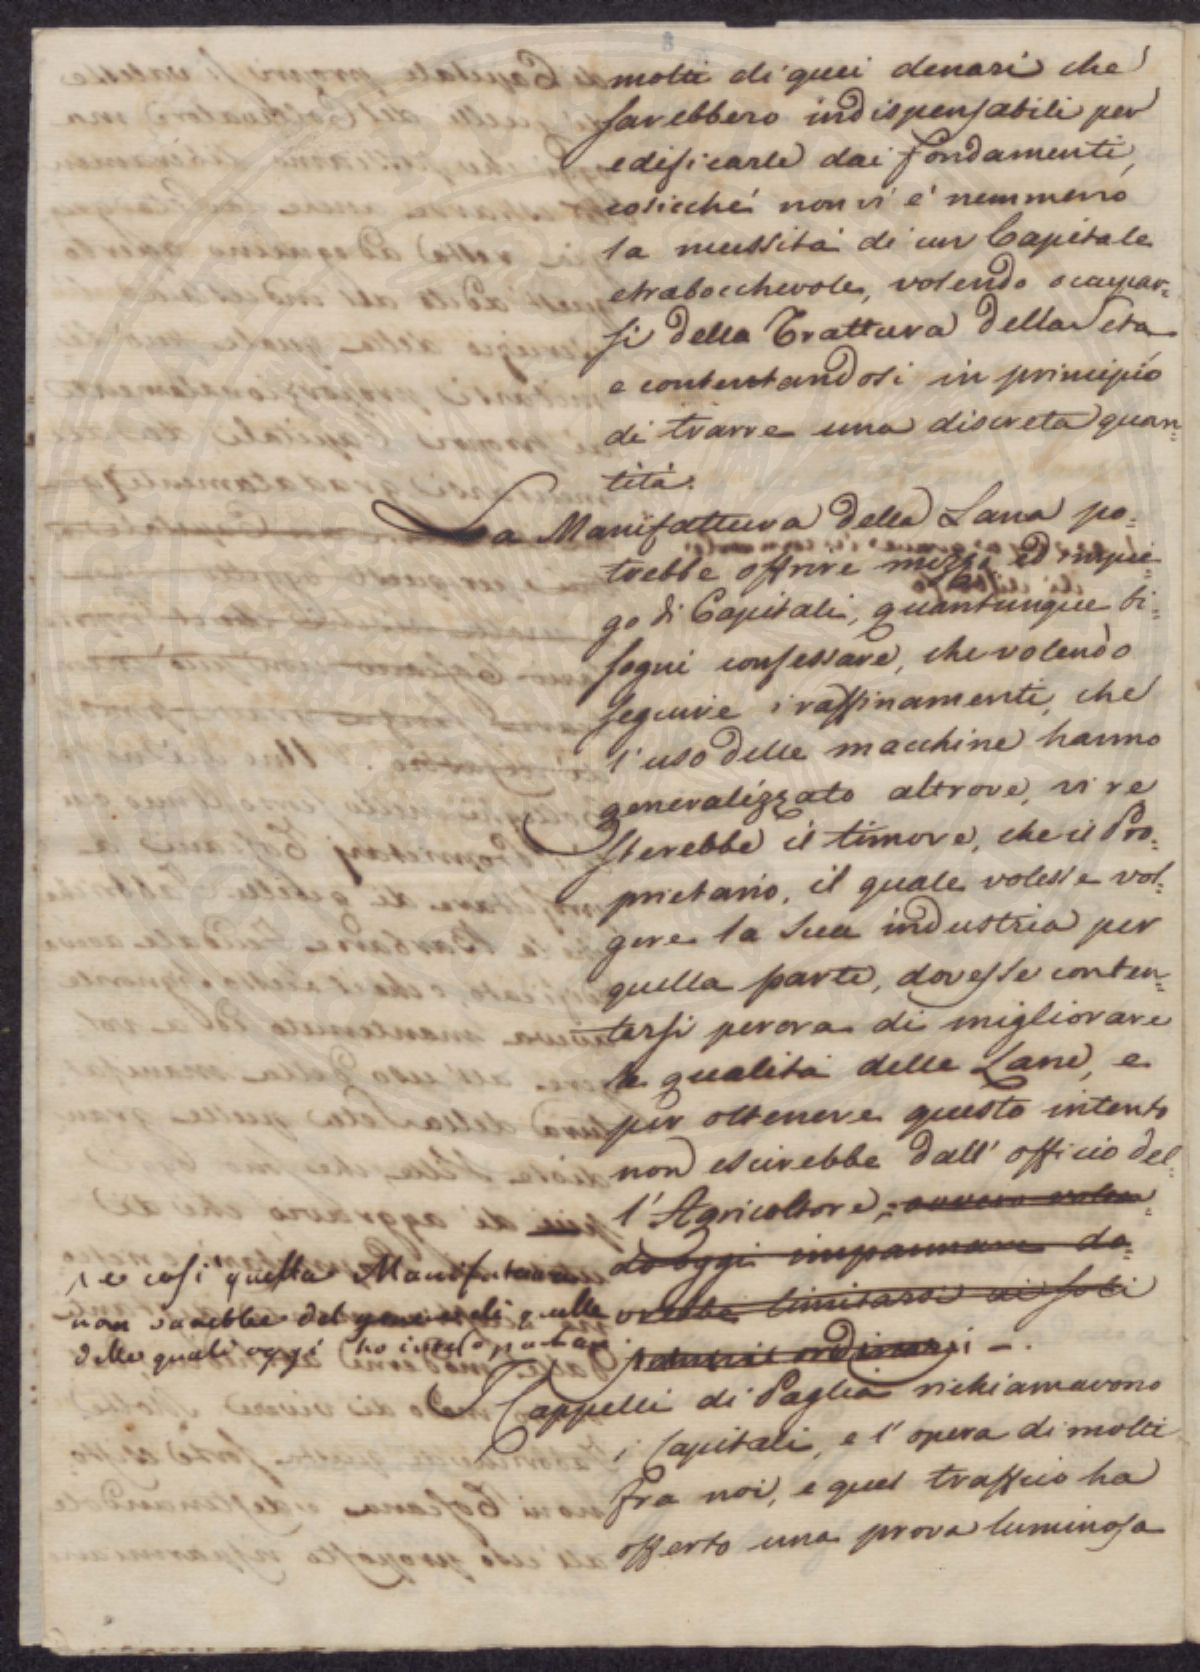 molti di quei denari che
sarebbero indispensabili per
edificarle dai fondamenti,
cosicché non vi é nemmeno
la necessità di un Capitale
strabocchevole, volendo occupar=
si della Trattura della Seta
e contentandosi in principio
di trarre una discreta quan=
tità.
La Manifattura della Lana po=
trebbe offrire mezzi ed impie=
go di Capitali, quantunque bi=
sogni confessare, che volendo
seguire i raffinamenti, che
l'uso delle macchine hanno
generalizzato altrove, vi re
sterebbe il timore, che il Pro=
prietario, il quale volesse vol=
gere la sua industria per
quella parte, dovesse conten=
tarsi per ora di migliorare
le qualità delle Lane, e
per ottenere questo intento
non escirebbe dall' officio del=
l'Agricoltore, ovvero volen=
do oggi impannare do=
vrebbe limitarsi ai soli
ordinarj -.
e così quella Manifattura
non sarebbe del quelle
delle quali oggi ho inteso parlare
I Cappelli di Paglia richiamavono
i Capitali, e l'opera di molti
fra noi, e quel traffico ha
offerto una prova luminosa